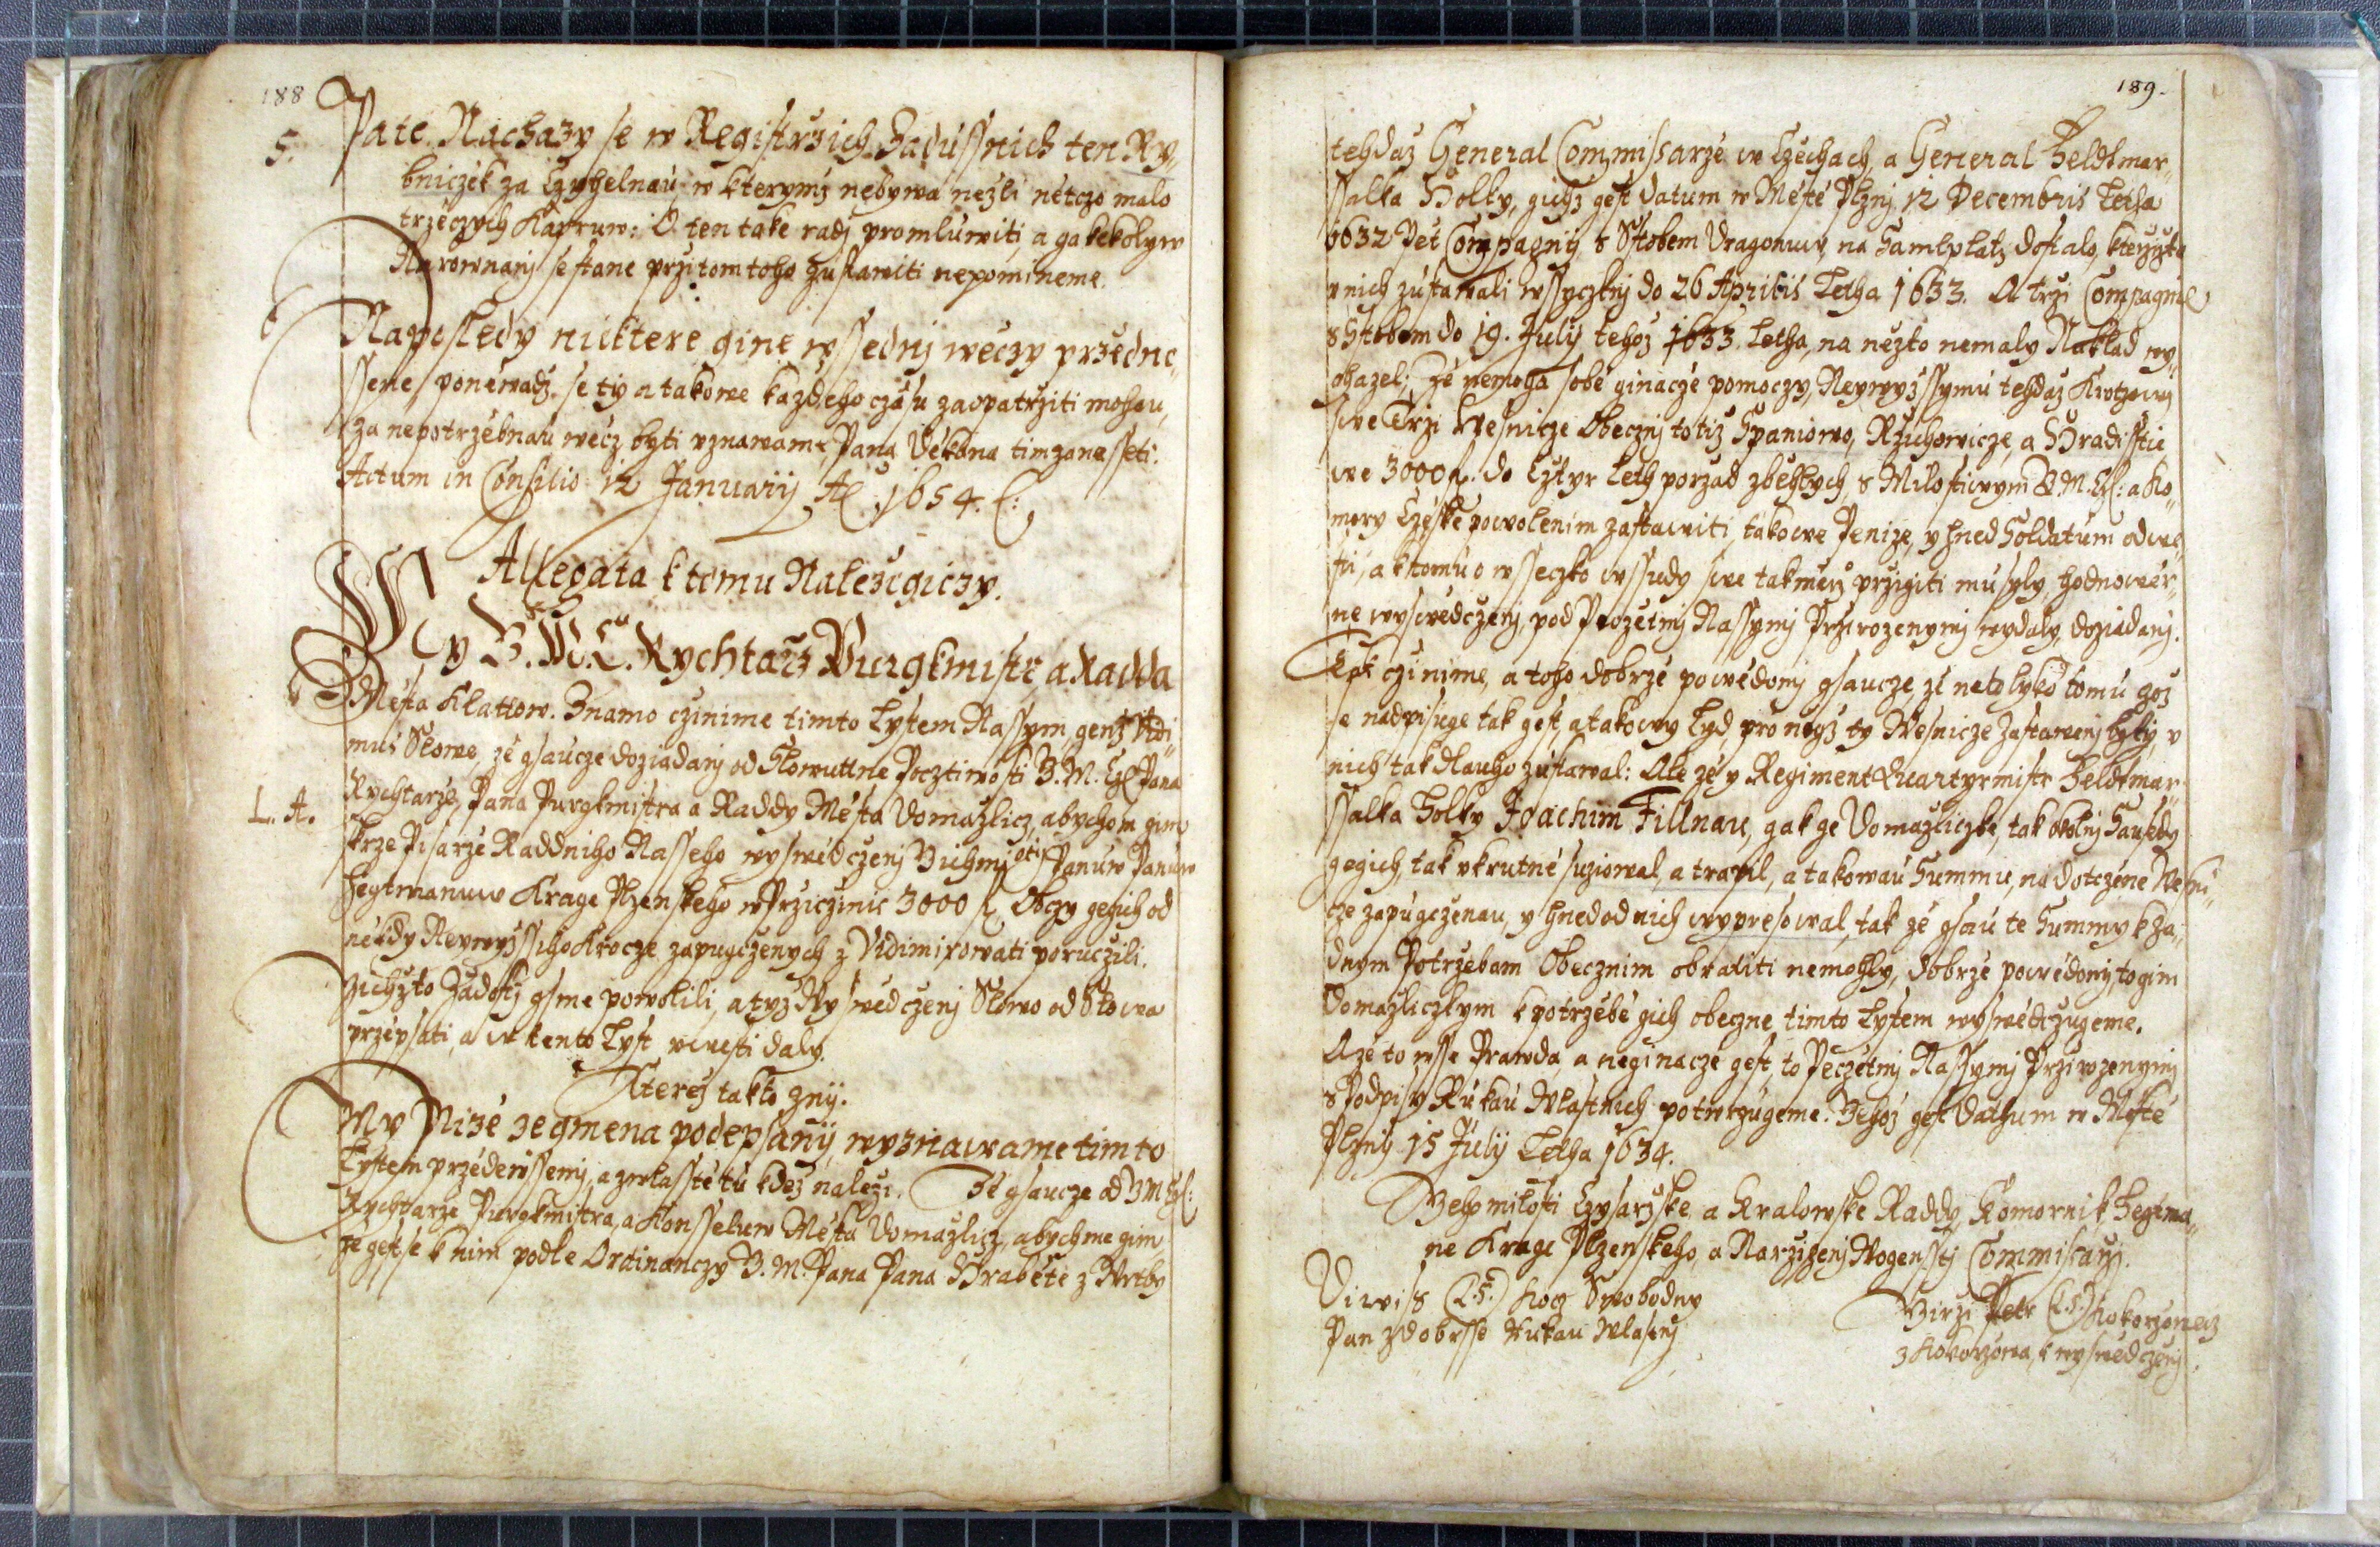 188
5. Pate. Nachazy se w Registrzich Zadussnich ten Ry„
bniczek za Czyhelnau, w kterymz nebywa nezli nėtczo malo
trzeczych Kapruw: O ten take radj promluwiti, a gakekolyw
Narownanj se stane przitom toho zustawiti nepomineme.
Naposledy nicktere gine wssednj wėczy przedne„
ssene, ponėwadz se tiy a takowe kazdeho czasu zaopatrziti mohau,
za nepotrzebnau wėcz byti uznawame, Pana Dėkana tim zanasseti.
Actum in Consilio 12 Januarij Aõ 1654.
Allegata k tomu Nalezegiczy.
My G. M. C. Rychtarz Purgkmistr a Radda
Mėsta Klattow. Znamo czinime timto Lystem Nassym, genz Vidi„
mus Slowe, zė gsaucze doziadanj od Slowuttne Pocztiwosti G. M. Czl Pana
L. A. Rychtarze, Pana Purgkmistra a Raddy Mėsta Domazlicz, abychom gim
skrze Pisarze Raddniho Nasseho wyswėdczenj Gichmiosti Panuw Panuw
Hegtmanuw Krage Plzenskeho w Prziczinie 3000 fl. Obczy gegich od
nėkdy Neywyssiho Krocze zapugczenych z Vidimirowati poruczili.
Gichzto Zadosti gsme powolili, a tyz Wyswėdczenj Slowo od Slowa
przepsati, a w tento Lyst uwesti daly.
Kterez takto znij.
My Nize ze gmena podepsanij, wyznawame timto
Lystem przedewssemj, a zwlasstė tu kdez nalezi. Zė gsaucze od G M Czl:
Rychtarze Purgkmistra, a Konsseluw Mėsta Domazlicz, abychme gim
ze gest se k nim podle Ordinanczy G. M. Pana Pana Hrabėte z Wrtby
189.
tehdaz General Commissarze w Czechach, a General Feldtmar„
ssalka Holky, gichz gest datum w Mėstė Plznj 12 Decembris Letha
1632 Pėt Compagnij s Sstobem Dragonuw, na Samlplatz dostalo, kterizto
u nich zustawali wssyczknj do 26 Aprilis Letha 1633. A trzi Compagnie
s Sstobem do 19. July tehoz 1633. Letha, na nezto nemaly Naklad wy„
chazel; Zė nemoga sobė ginacze pomoczy, Neywyzssymu tehdaz Kroczowj
swe Trzi Wesnicze Obecznj totiz Spaniowo, Rzichowicze, a Hradisstie
we 3000 fl. do Cztyr Leth porzad zbėhlych, s Milostiwym G. M. Czl: a Ko„
mory Czeske powolenim zastawiti, takowe Penize, y hned Soldatum odwe„
sti, a k tomu o wsseczko wssudy swe takmėrz przigiti musyly, hodnowėr„
ne wyswėdczenj, pod Peczetmj Nassymj Przirozenymj wydaly, doziadanj.
Tak czinime, a toho dobrze powėdomj gsaucze, zė netolyko tomu goz
se nadpisuge tak gest, a takowy Lyd, pro nėgz ty Wesnicze zastawenj byly, u
nich tak dlauho zustawal: Ale zė y Regiment Quartyrmistr Feldtmar„
ssalka Holky Joachim Fillnau, gak ge Domazliczke, tak okolnj Sausedy
gegich, tak ukrutnė suziowal, a trapil, a takowau Summu, na dotczene Wesni„
cze zapugczenau, y hned od nich wypresowal, tak zė gsau te Summy k za„
dnym Potrzebam Obecznim obratiti nemohly, dobrze powėdomj, to gim
Domazliczkym k potrzebė gich obeczne timto Lystem wyswėdczugeme.
A zė to wsse Prawda, a neginacze gest, to Peczetmj Nassymj Przirozenymj
s Podpisy Rukau Wlastnich potwrzugeme. Gehoz gest Dathum w Mėstė
Plznij 15 Julij Letha 1634.
Gehomilosti Czysarzske a Kralowske Raddy, Komornik, Hegtma„
ne Krage Plzenskeho, a Narzizenj Wogensstj Commissarzi.
Diwiss (L.S.) Kocz Swobodny
Pan z Dobrsse Rukau Wlasnj
Girzi Petr (L.S.) Kokorzowecz
z Kokorzowa, k wyswėdczenj.